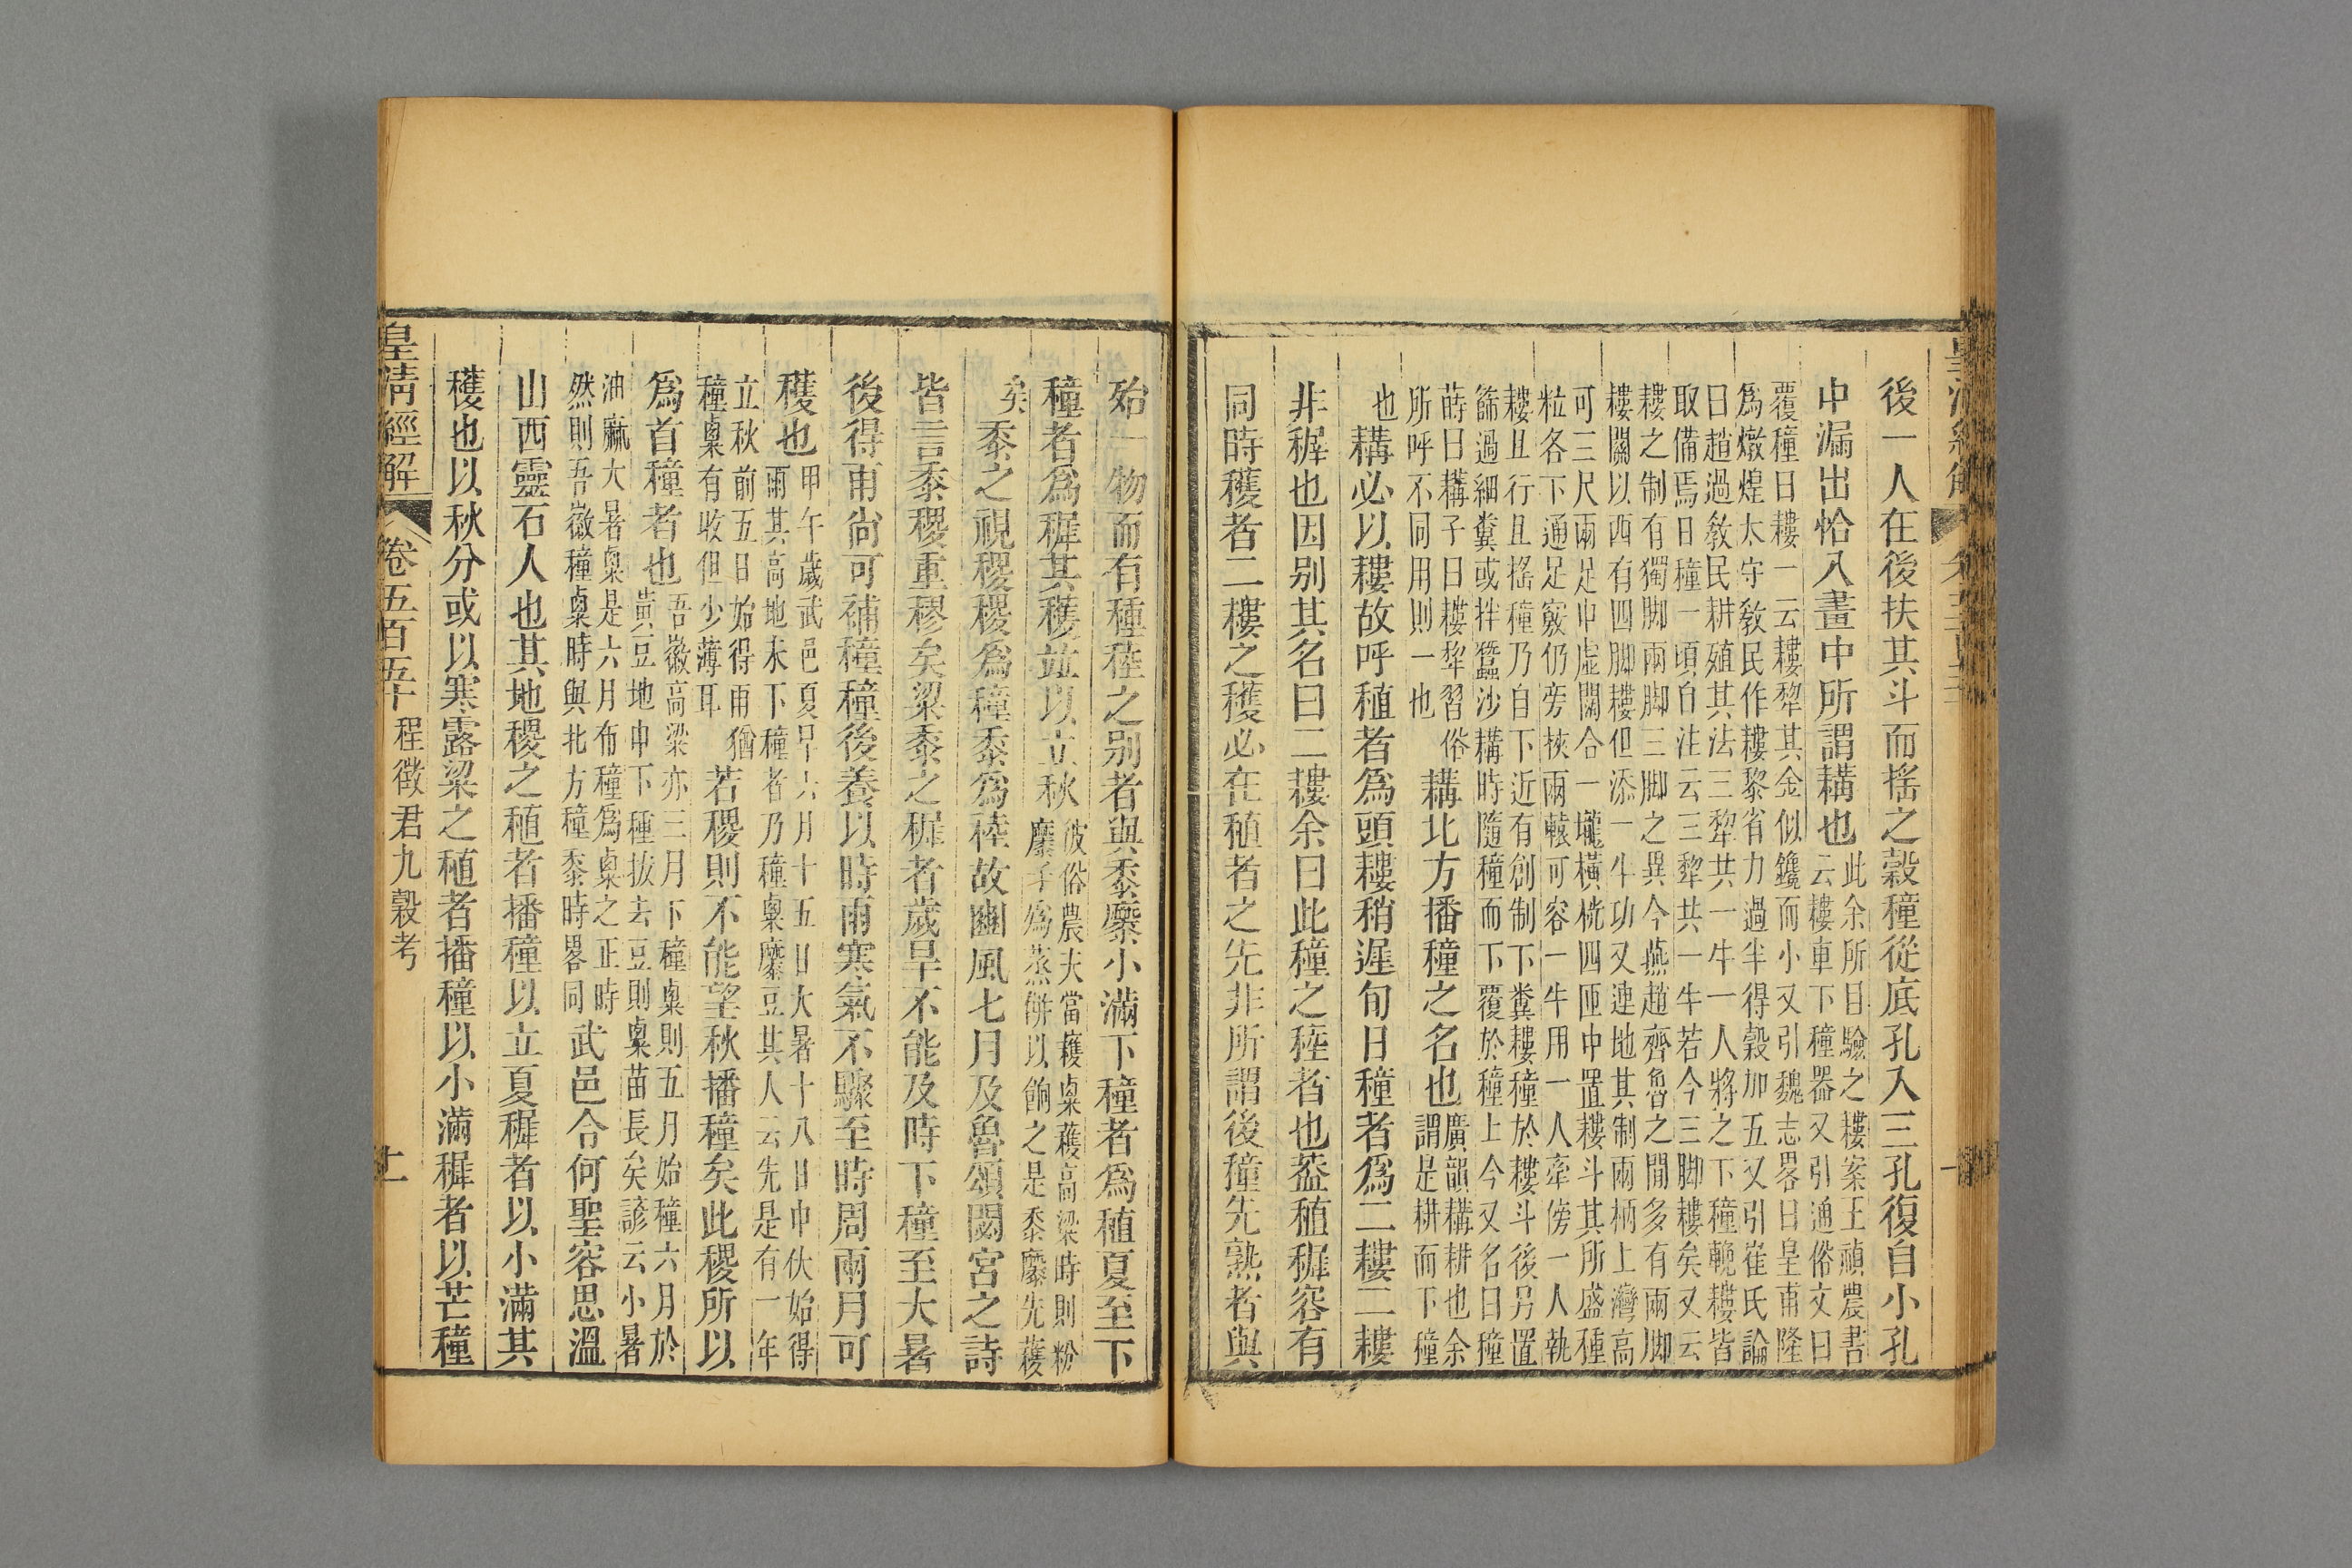 後一人在後扶其斗而搖之穀穜從底孔入三孔復自小孔
中漏出恰入畫中所謂耩也
此余所目驗之耬案王禎農書
云耬車下穜器又引通俗文曰
覆穜曰耬一云耬犂其金似鑱而小又引魏志畧曰皇甫隆
爲燉煌太守敎民作耬黎省力過半得穀加五又引崔氏論
曰趙過敎民耕殖其法三犂共一牛一人將之下穜輓耬皆
取備焉日穜一頃自注云三犂共一牛若今三脚耬矣又云
耬之制有獨脚兩脚三脚之異今燕趙齊魯之閒多有兩脚
耬關以西有四脚耬但添一牛功又速地其制兩柄上彎高
可三尺兩足中虛闊合一壠橫桄四匝中置耬斗其所盛種
粒各下通足竅仍旁挾兩轅可容一牛用一人牽傍一人執
耬且行且搖穜乃自下近有創制下糞耬穜於耬斗後另置
篩過細糞或拌蠶沙耩時隨穜而下覆於穜上今又名曰穜
蒔曰耩子曰耬犂習俗
所呼不同用則一也
耩北方播穜之名也
廣韻耩耕也余
謂是耕而下穜
也
耩必以耬故呼稙者爲頭耬稍遲旬日穜者爲二耬二耬
非穉也因别其名曰二耬余曰此穜之稑者也葢稙穉容有
同時穫者二耬之穫必在稙者之先非所謂後穜先熟者與
殆一物而有種稑之别者與黍穈小滿下穜者爲稙夏至下
穜者爲穉其穫竝以立秋
彼俗農夫當穫㮚穫高梁時則粉
穈子爲蒸餠以餉之是黍穈先穫
矣
黍之視稷稷爲穜黍爲稑故豳風七月及魯頌閟宮之詩
皆言黍稷重穋矣粱黍之穉者歲旱不能及時下穜至大暑
後得雨尙可補穜穜後養以時雨寒氣不驟至時周兩月可
穫也
甲午歲武邑夏旱六月十五日大暑十八日中伏始得
雨其高地未下穜者乃穜㮚穈豆其人云先是有一年
立秋前五日始得雨猶
穜㮚有收但少薄耳
若稷則不能望秋播穜矣此稷所以
爲首穜者也
吾徽高粱亦三月下穜㮚則五月始穜六月於
黃豆地中下種拔去豆則㮚苗長矣諺云小暑
油麻大暑㮚是六月布穜爲㮚之正時
然則吾徽穜㮚時與北方穜黍時畧同
武邑令何聖容思溫
山西靈石人也其地稷之稙者播穜以立夏穉者以小滿其
穫也以秋分或以寒露粱之稙者播穜以小滿穉者以芒穜
皇清經解
卷五百五十
程徵君九穀考
十一